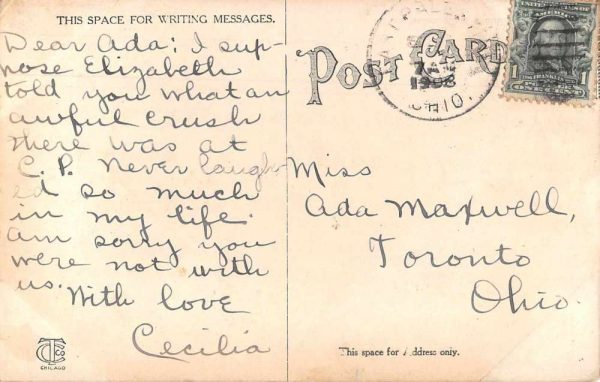 THIS SPACE FOR WRITING MESSAGES.
Dear Ada: I sup-
pose Elizabeth
told you what an
awful crush
there was at
C. P. Never laugh-
ed so much
in my life.
am sorry you
were not with
us. With love
Cecilia
CHICAGO
POST CARD
1908
OHIO.
1
ONE CENT
Miss
Ada Maxwell,
Toronto
Ohio.
This space for Address only.